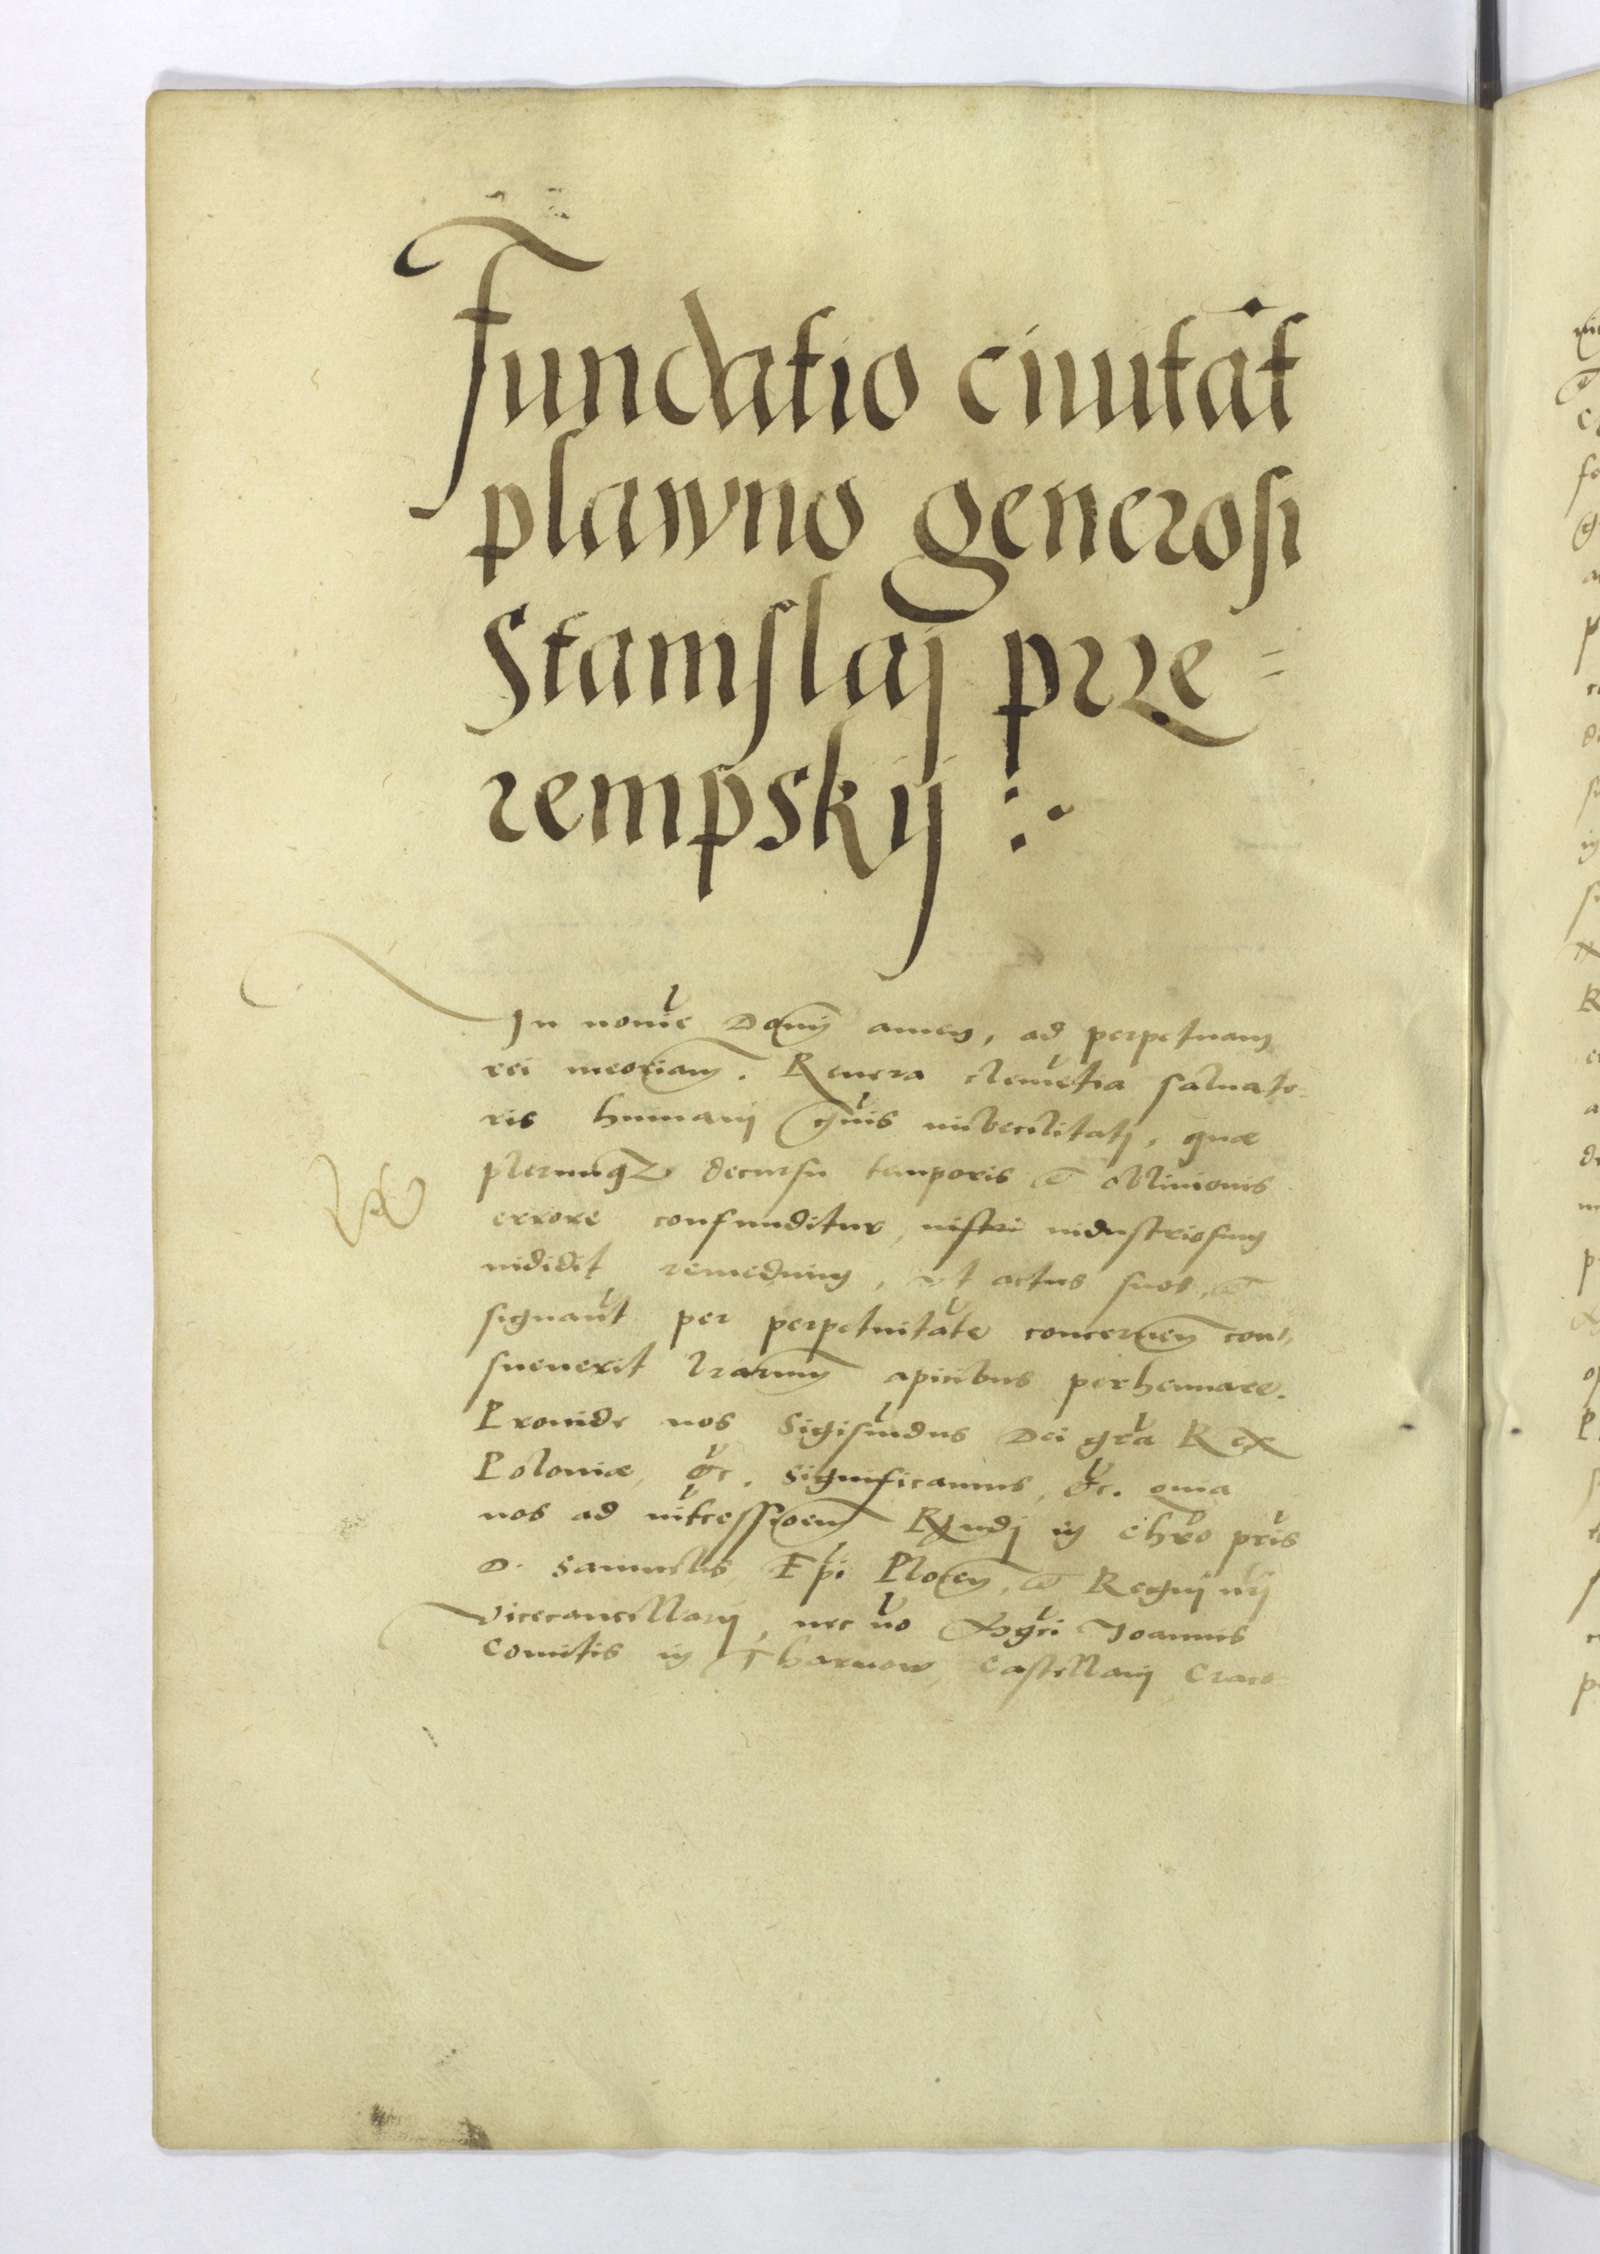 Fundatio ciuitat
plawno generosi
Stanislai prze=
rempskij :.
In nomie Domj amen, ad perpetuam
rei meoriam. Reuera clemetia saluato
ris humanj gnis imbecilitatj, quae
plerumqz decursu temporis et obliuionis
errore confunditur, industriosum
indidit remedium, ut actus suos, et
signant per perpetuitate concernen con,
sueuerit lrarum apicibus perhennare.
Prouide nos Sigismdus Dei gra Rex
Poloniae, etc. Significamus, etc. quia
nos ad intcessioem Rndj in Chro pris
D. Samuelis Epi Plocen, et Regnj nrj
Vicecancellarij, nec no Mgci Joannis
Comitis in Tharnow, Castellanj Craco